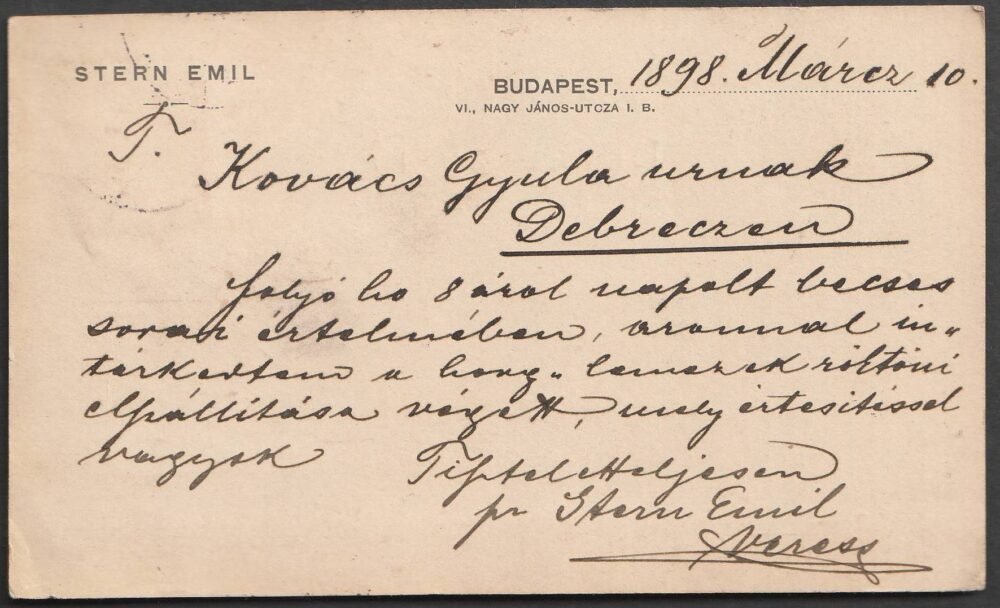 STERN EMIL
BUDAPEST, 1898. Márcz 10.
VI., NAGY JÁNOS-UTCZA 1. B.
T.
Kovács Gyula urnak
Debreczen
folyó ho 8 áról napolt becses
sorai értelmében, azonnal in„
tézkedtem a horg„ lemezek rögtöni
elszállítása végett, mely értesítéssel
vagyok
Tiszteletteljesen
pr Stern Emil
Veress